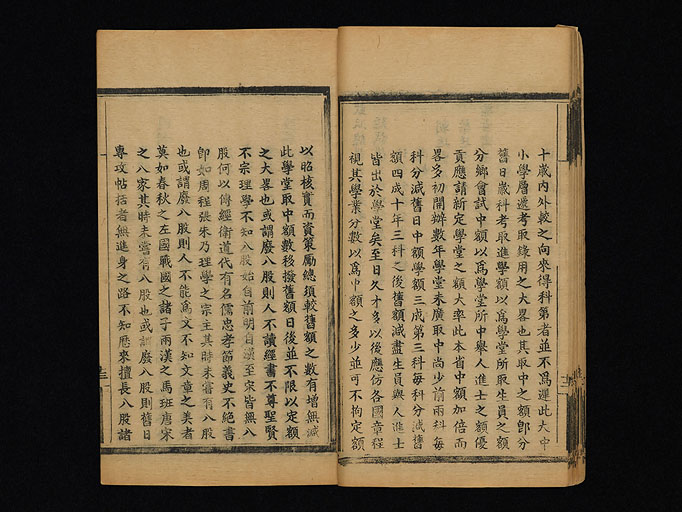 十歲內外較之向來得科第者並不為遲此大中
小學層遞考取錄用之大畧也其取中之額卽分
舊日歲科考取進學額以為學堂所取生員之額
分鄉會試中額以為學堂所中舉人進士之額優
貢應請新定學堂之額大率此本省中額加倍而
畧多初開辦數年學堂未廣取中尚少前兩科每
科分減舊日中額學額三成第三科每科分減舊
額四成十年三科之後舊額減盡生員與人進士
皆出於學堂矣至日久才多以後應仿各國章程
視其學業分數以為中額之多少並可不拘定額
以昭核實而資策勵總須較舊額之數有增無減
此學堂取中額數移撥舊額日後並不限以定額
之大畧也或謂廢八股則人不讀經書不尊聖賢
不宗理學不知八股始自前明自漢至宋皆無八
股何以傳經衛道代有名儒忠孝節義史不絕書
卽如周程張朱乃理學之宗主其時未嘗有八股
也或謂廢八股則人不能為文不知文章之美者
莫如春秋之左國戰國之諸子兩漢之馬班唐宋
之八家其時未嘗有八股也或謂廢八股則舊日
專攻帖括者無進身之路不知歷來擅長八股諸